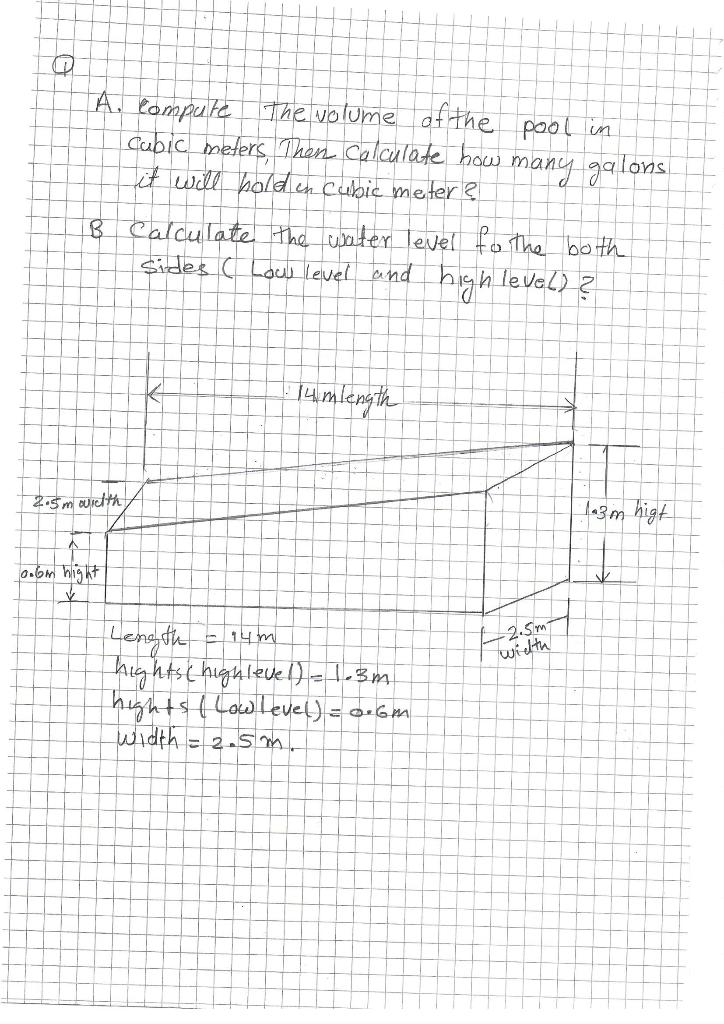 ①
A. compute The volume of the pool in
cubic meters, Then Calculate how many galons
it will hold in cubic meter?
B Calculate the water level fo the both
sides ( Low level and high level) ?
14m length
2.5m width
1.3m higt
0.6m hight
2.5m
width
Length = 14m
hights (high level) = 1.3m
hights ( Low level) = 0.6m
Width = 2.5m.